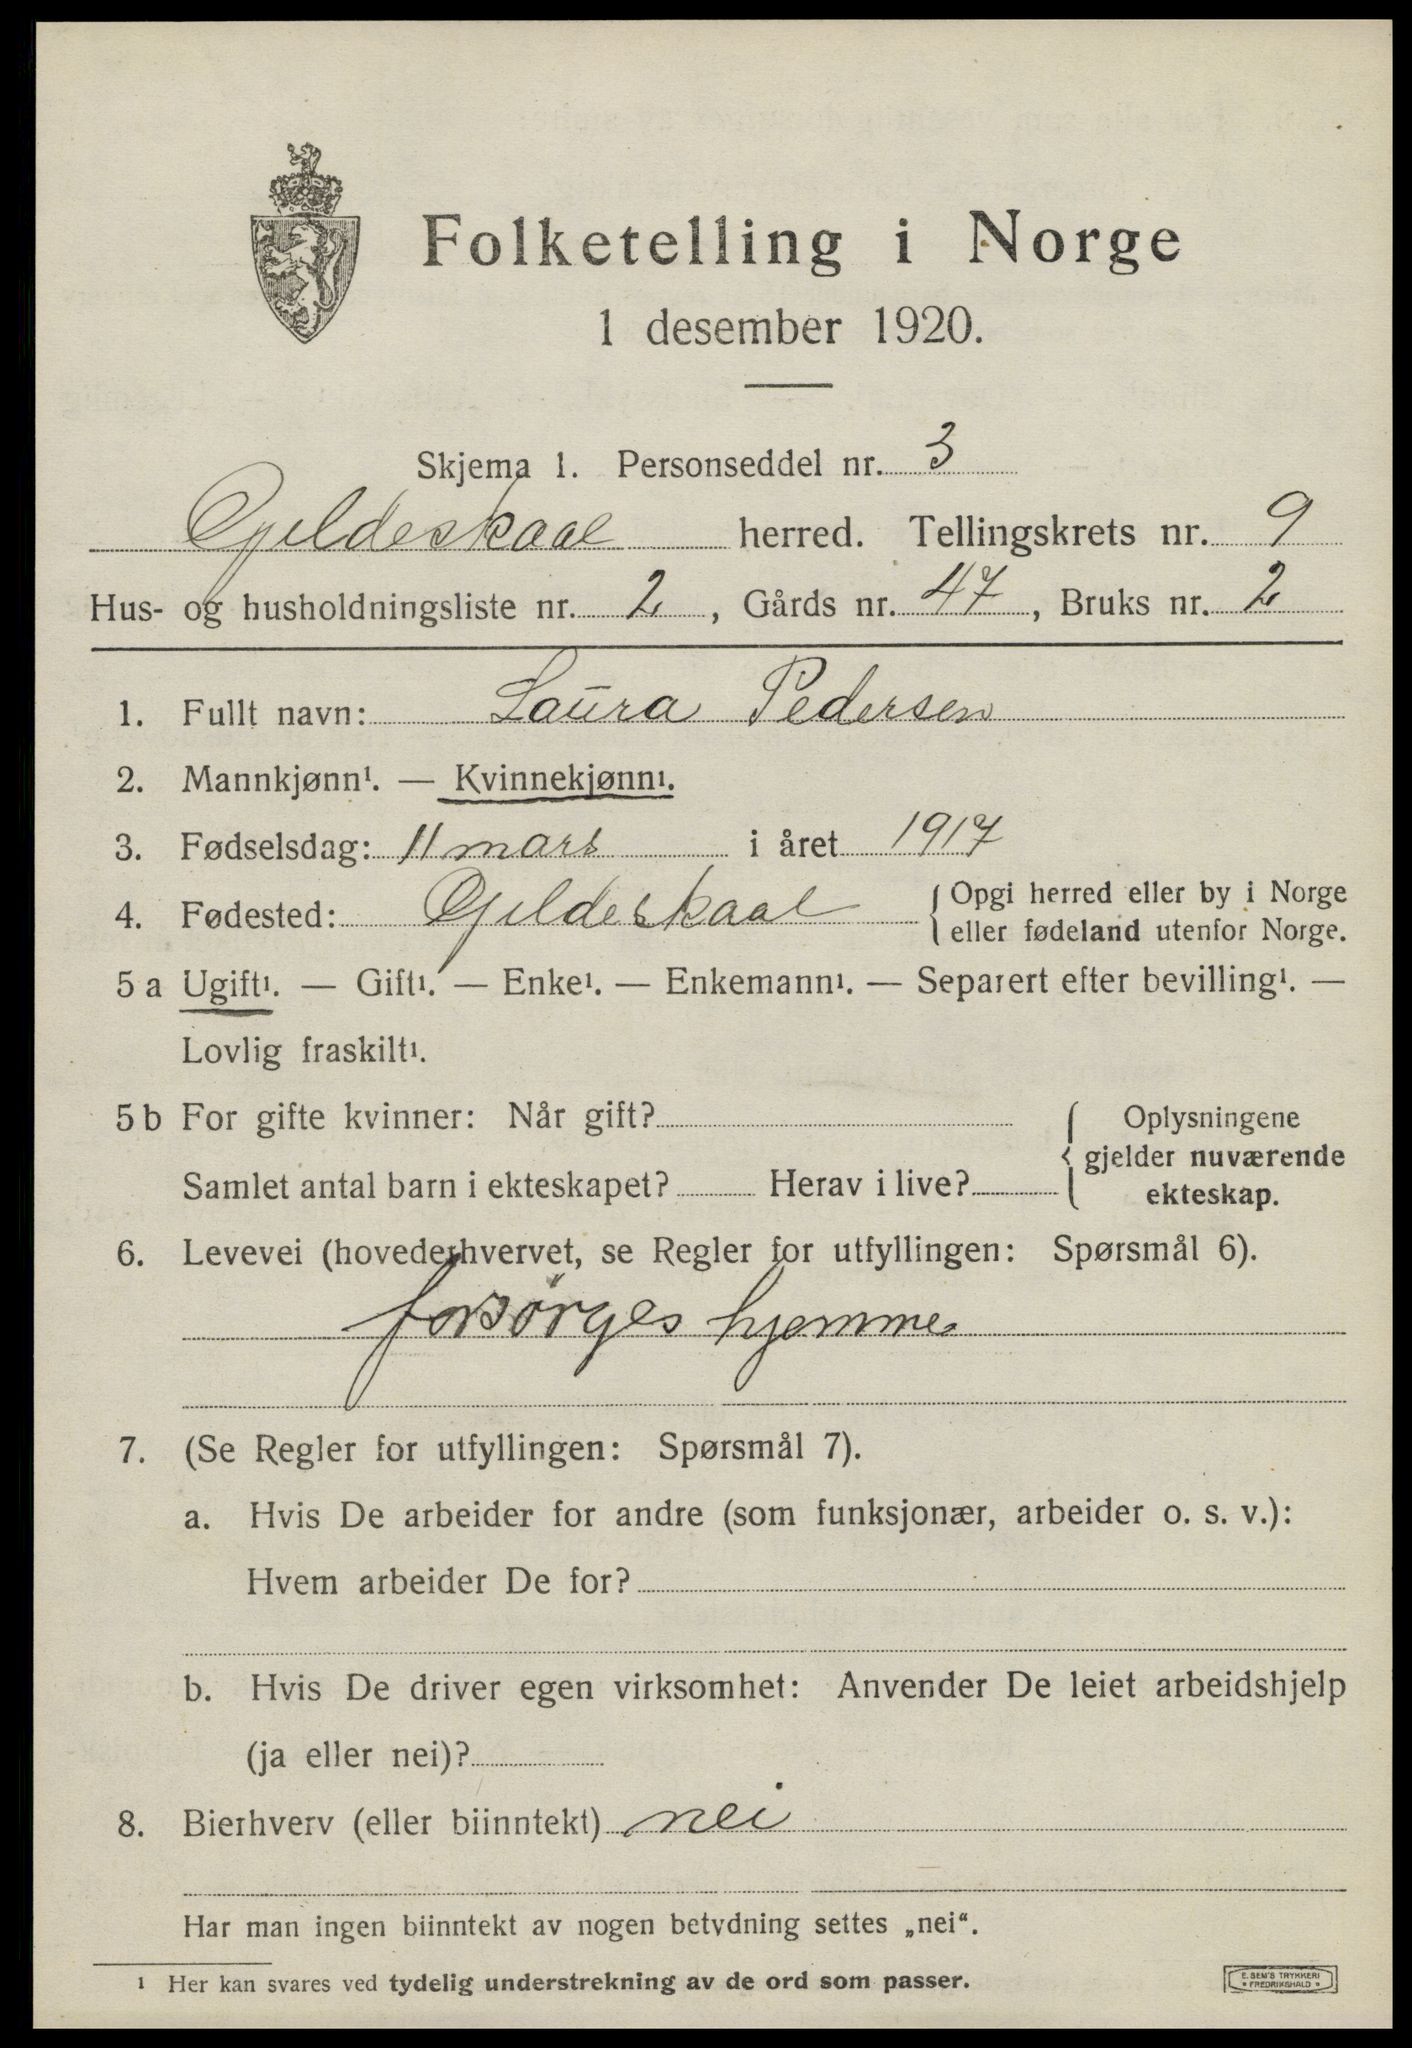 Folketelling i Norge
1 desember 1920.
Skjema 1. Personseddel nr. 3
Gjeldeskaal herred. Tellingskrets nr. 9
Hus- og husholdningsliste nr. 2, Gårds nr. 47, Bruks nr. 2
1. Fullt navn: Laura Pedersen
2. Mannkjønn¹. — Kvinnekjønn¹.
3. Fødselsdag: 11 mars i året 1917
4. Fødested: Gjeldeskaal { Opgi herred eller by i Norge
eller fødeland utenfor Norge.
5 a Ugift¹. — Gift¹. — Enke¹. — Enkemann¹. — Separert efter bevilling¹. —
Lovlig fraskilt¹.
5 b For gifte kvinner: Når gift?
Samlet antal barn i ekteskapet? Herav i live?
{ Oplysningene
gjelder nuværende
ekteskap.
6. Levevei (hovederhvervet, se Regler for utfyllingen: Spørsmål 6).
forsørges hjemme
7. (Se Regler for utfyllingen: Spørsmål 7).
a. Hvis De arbeider for andre (som funksjonær, arbeider o. s. v.):
Hvem arbeider De for?
b. Hvis De driver egen virksomhet: Anvender De leiet arbeidshjelp
(ja eller nei)?
8. Bierhverv (eller biinntekt) nei
Har man ingen biinntekt av nogen betydning settes „nei“.
¹ Her kan svares ved tydelig understrekning av de ord som passer.
E. SEM'S TRYKKERI
* FREDRIKSHALD *